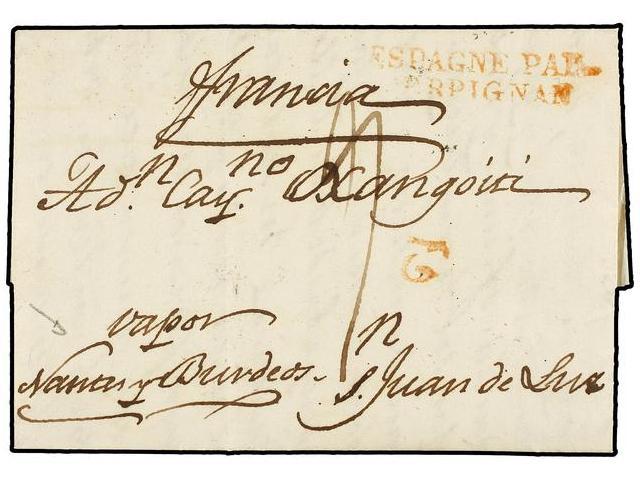 ESPAGNE PAR
PERPIGNAN
ffrancia
Ad.n Cay.no Oxangoiti
vapor
Nantes y Burdeos.
n
S. Juan de Luz